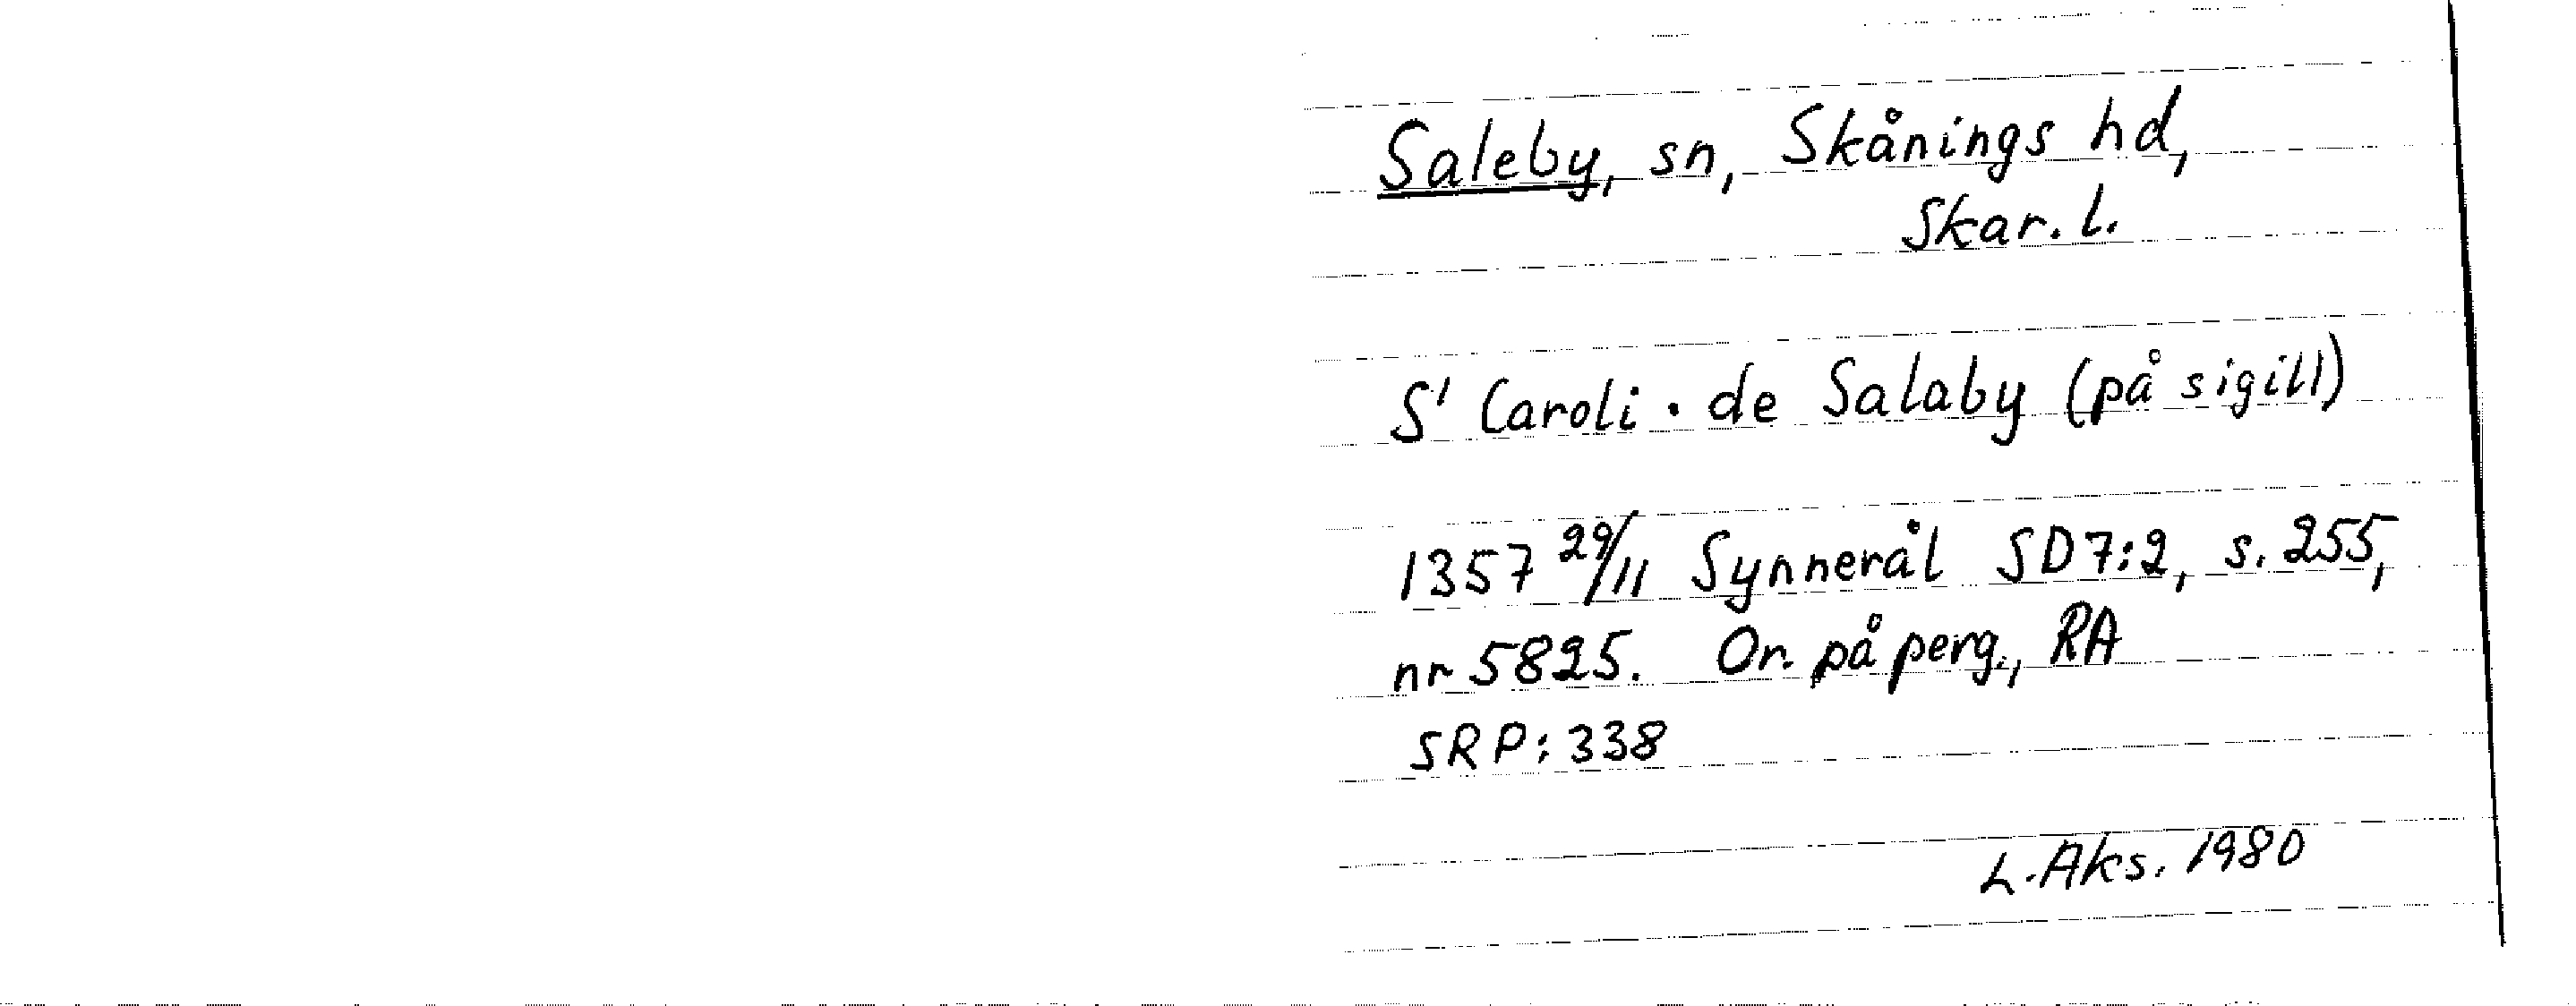 Saleby, sn, Skånings hd,
Skar. l.
S' Caroli · de Salaby (på sigill)
1357 29/11 Synnerål SD7:2, s. 255,
nr 5825. Or. på perg., RA
SRP: 338
L. Aks. 1980